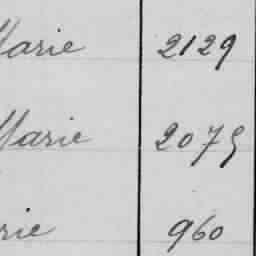 Marie 2129
Marie 2075
rie 960